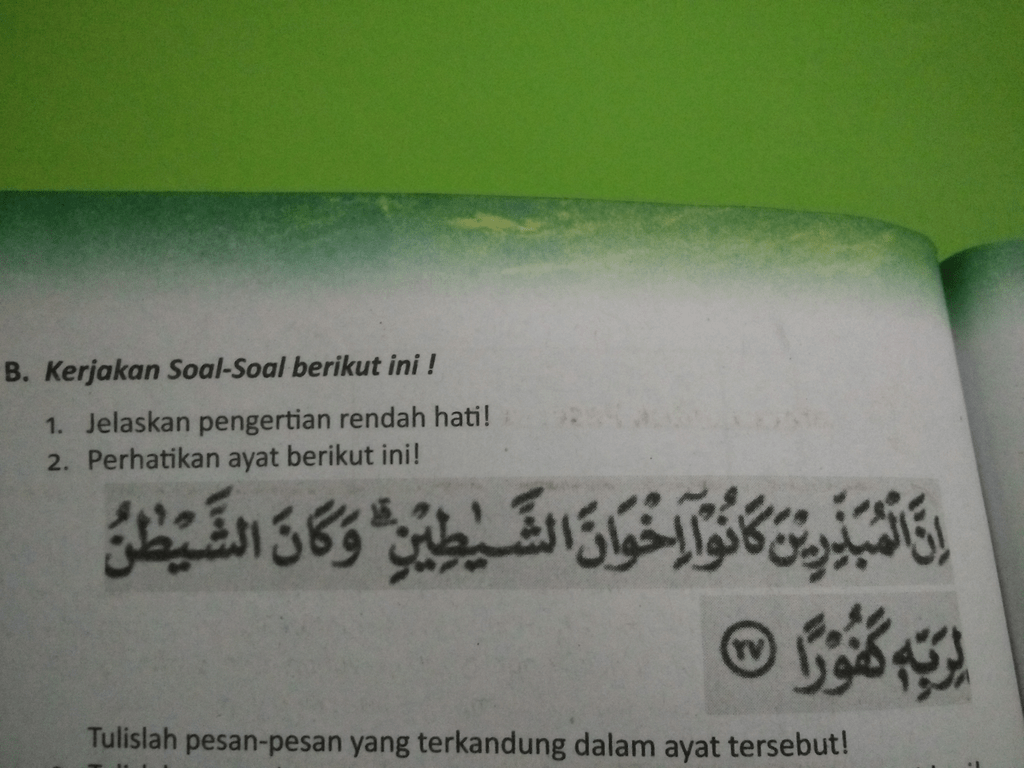 B. Kerjakan Soal-Soal berikut ini !
1. Jelaskan pengertian rendah hati!
2. Perhatikan ayat berikut ini!
اِنَّ الْمُبَذِّرِيْنَ كَانُوْٓا اِخْوَانَ الشَّيٰطِيْنِ ۗ وَكَانَ الشَّيْطٰنُ
لِرَبِّهٖ كَفُوْرًا ٢٧
Tulislah pesan-pesan yang terkandung dalam ayat tersebut!